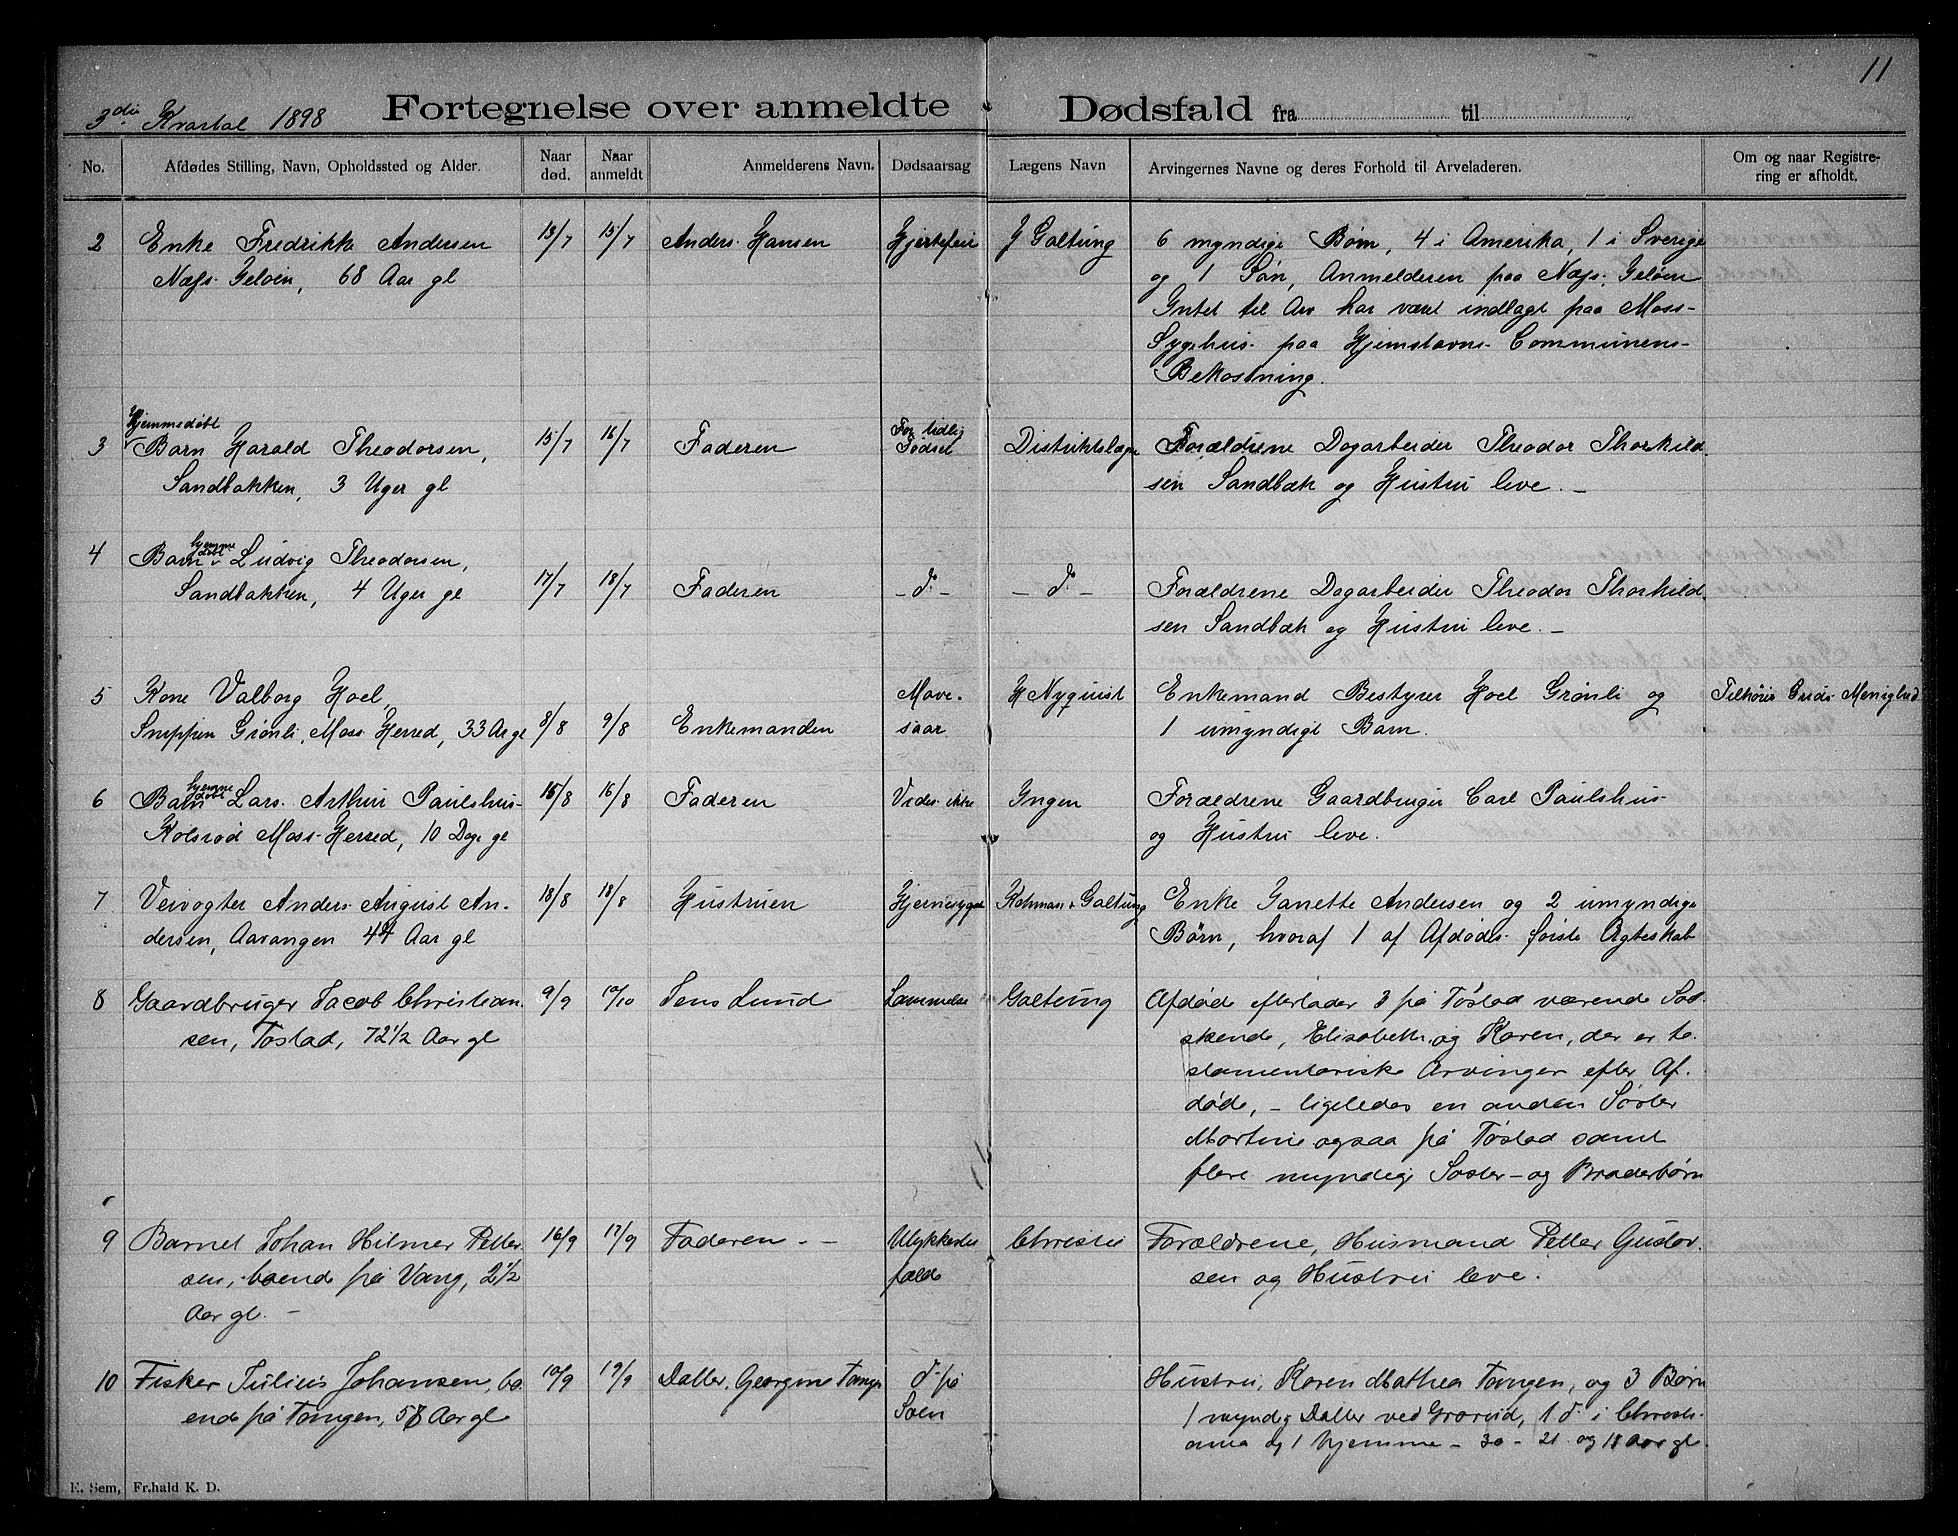 11
3die Kvartal 1898 Fortegnelse over anmeldte Dødsfald fra til
No. Afdødes Stilling, Navn, Opholdssted og Alder. Naar død. Naar anmeldt Anmelderens Navn. Dødsaarsag Lægens Navn Arvingernes Navne og deres Forhold til Arveladeren. Om og naar Registrering er afholdt.
2 Enke Fredrikke Andersen 13/7 15/7 Anders Hansen Hjertefeil J Galtung 6 myndige Børn, 4 i Amerika, 1 i Sverige
Næss Geløen, 68 Aar gl og 1 Søn, Anmelderen paa Næss, Geløen
Intet til Arv har været indlagt paa Moss
Sygehus paa Hjemstavns Communens
Bekostning.
Hjemmedøbt
3 Barn Harald Theodorsen, 15/7 16/7 Faderen For tidlig Fødsel Distriktslægen Forældrene Dagarbeider Theodor Thorkild
Sandbakken, 3 Uger gl sen Sandbæk og Hustru leve. –
4 Barn hjemme døbt Ludvig Theodorsen,
Sandbakken, 4 Uger gl 17/7 18/7 Faderen – d° – – d° – Forældrene Dagarbeider Theodor Thorkild
sen Sandbæk og Hustru leve. –
5 Kone Valborg Hoel, Mave- H Nyquist Enkemand Bestyrer Hoel Grønli og Tilhører Menighed
Grønli, Moss Herred, 33 Aar gl 8/8 9/8 Enkemanden saar 1 umyndigt Barn.
6 Barn hjemme døbt Lars Arthur Paulshus 15/8 16/8 Faderen Vides ikke Ingen Forældrene Gaardbruger Carl Paulshus
Kolsrød Moss Herred, 10 Dage gl og Hustru leve.
7 Veivogter Anders August An- 18/8 18/8 Hustruen Hjernesygd Galtung Enke Janette Andersen og 2 umyndige
dersen, Aavangen 44 Aar gl Børn, hvoraf 1 af Afdøds første Ægteskab
8 Gaardbruger Jacob Christian- 9/9 10/10 Jens Lund Lammelse Galtung Afdøde efterlader 3 på Tøstad værende Søs-
sen, Tøstad, 72 1/2 Aar gl skende, Elisabeth og Karen, der er te-
stamentariske Arvinger efter Af-
døde, – ligeledes en anden Søster
Martine ogsaa på Tøstad samt
flere myndige Søster- og Broderbørn
9 Barnet Johan Hilmer Petter- 16/9 17/9 Faderen – – Ulykkestil Christie Forældrene, Husmand Petter Gustav-
sen, boende på Vang, 2 1/2 fælde sen og Hustru leve.
Aar gl. –
10 Fisker Julius Johansen, bo- 10/9 19/9 Datter, Georgine Tangen d° på Hustru, Karen Mathea Tangen, og 3 Børn
ende på Tangen, 58 Aar gl Søen 1 myndig Datter ved Grorud, 1 d° i Christi-
ania og 1 hjemme – 30 – 21 og 18 Aar gl.
E. Sem, Fr.hald K. D.